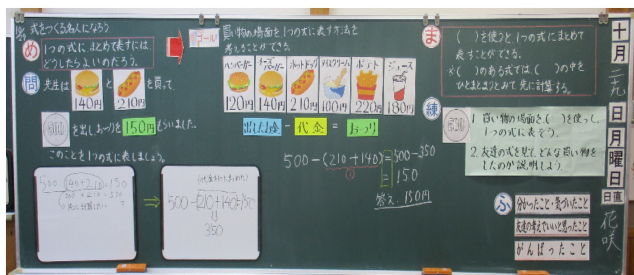 式をつくる名人になろう
め 1つの式にまとめて表すには、
どうしたらよいのだろう。
問 先生は
140円
と
210円
を買って
500
を出し、おつりを150円もらいました。
このことを1つの式に表しましょう。
ゴール
買い物の場面を1つの式に表す方法を
考えることができる。
ハンバーガー
120円
チーズバーガー
140円
ホットドッグ
210円
アイスクリーム
100円
ポテト
220円
ジュース
180円
出したお金 - 代金 = おつり
500-(210+140)=500-350
①
=150
答え.150円
500-(140+210)=150
(代金をひとまとめ)
500-(210+140)=150
350
ま ( )を使うと、1つの式にまとめて
表すことができる。
※( )のある式では( )の中を
ひとまとまりとみて、先に計算する。
練
1. 買い物の場面を、( )を使って、
1つの式に表そう。
2. 友達の式を見て、どんな買い物を
したのか説明しよう。
ふ
分かったこと・気づいたこと
友達の考えでいいと思ったこと
がんばったこと
十月二九日
月曜日
日直
花咲